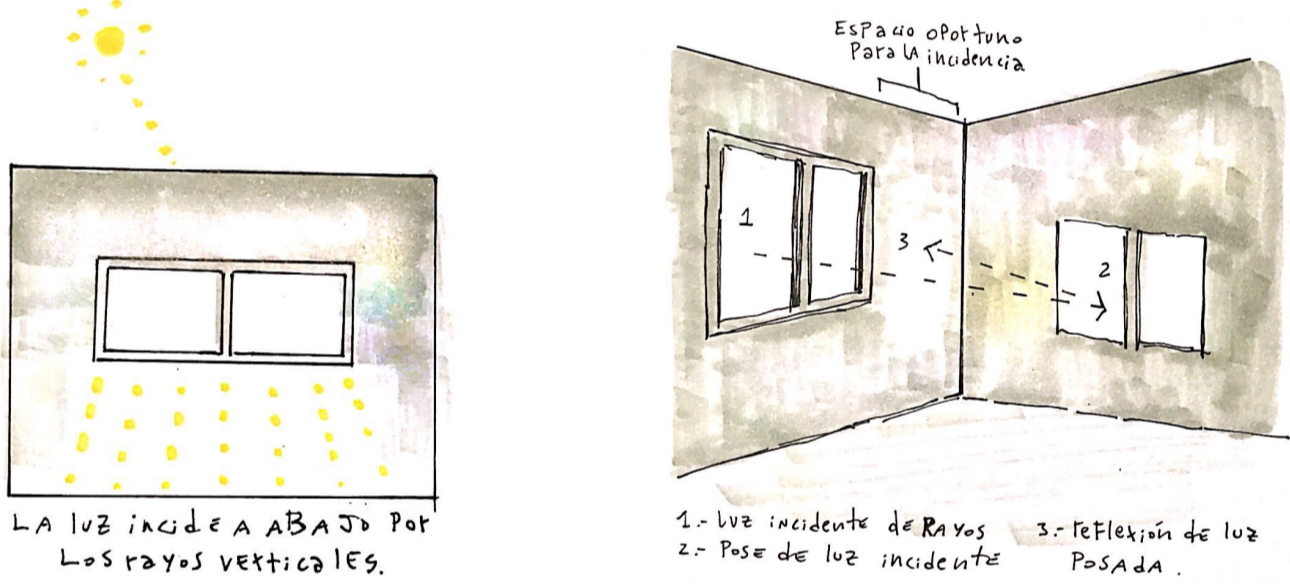 LA luz incidE A ABAJO Por
Los rayos verticales.
Espacio oportuno
Para la incidencia
1
2
3
1.- luz incidente de RAYOS
2.- Pose de luz incidente
3.- reflexión de luz
Posada.